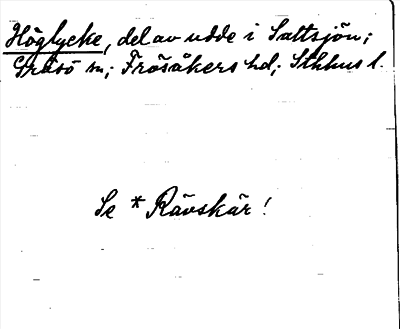 Höglycke, del av udde i Saltsjön;
Gräsö sn; Frösåkers hd; Sthlms l.
Se * Rävskär!